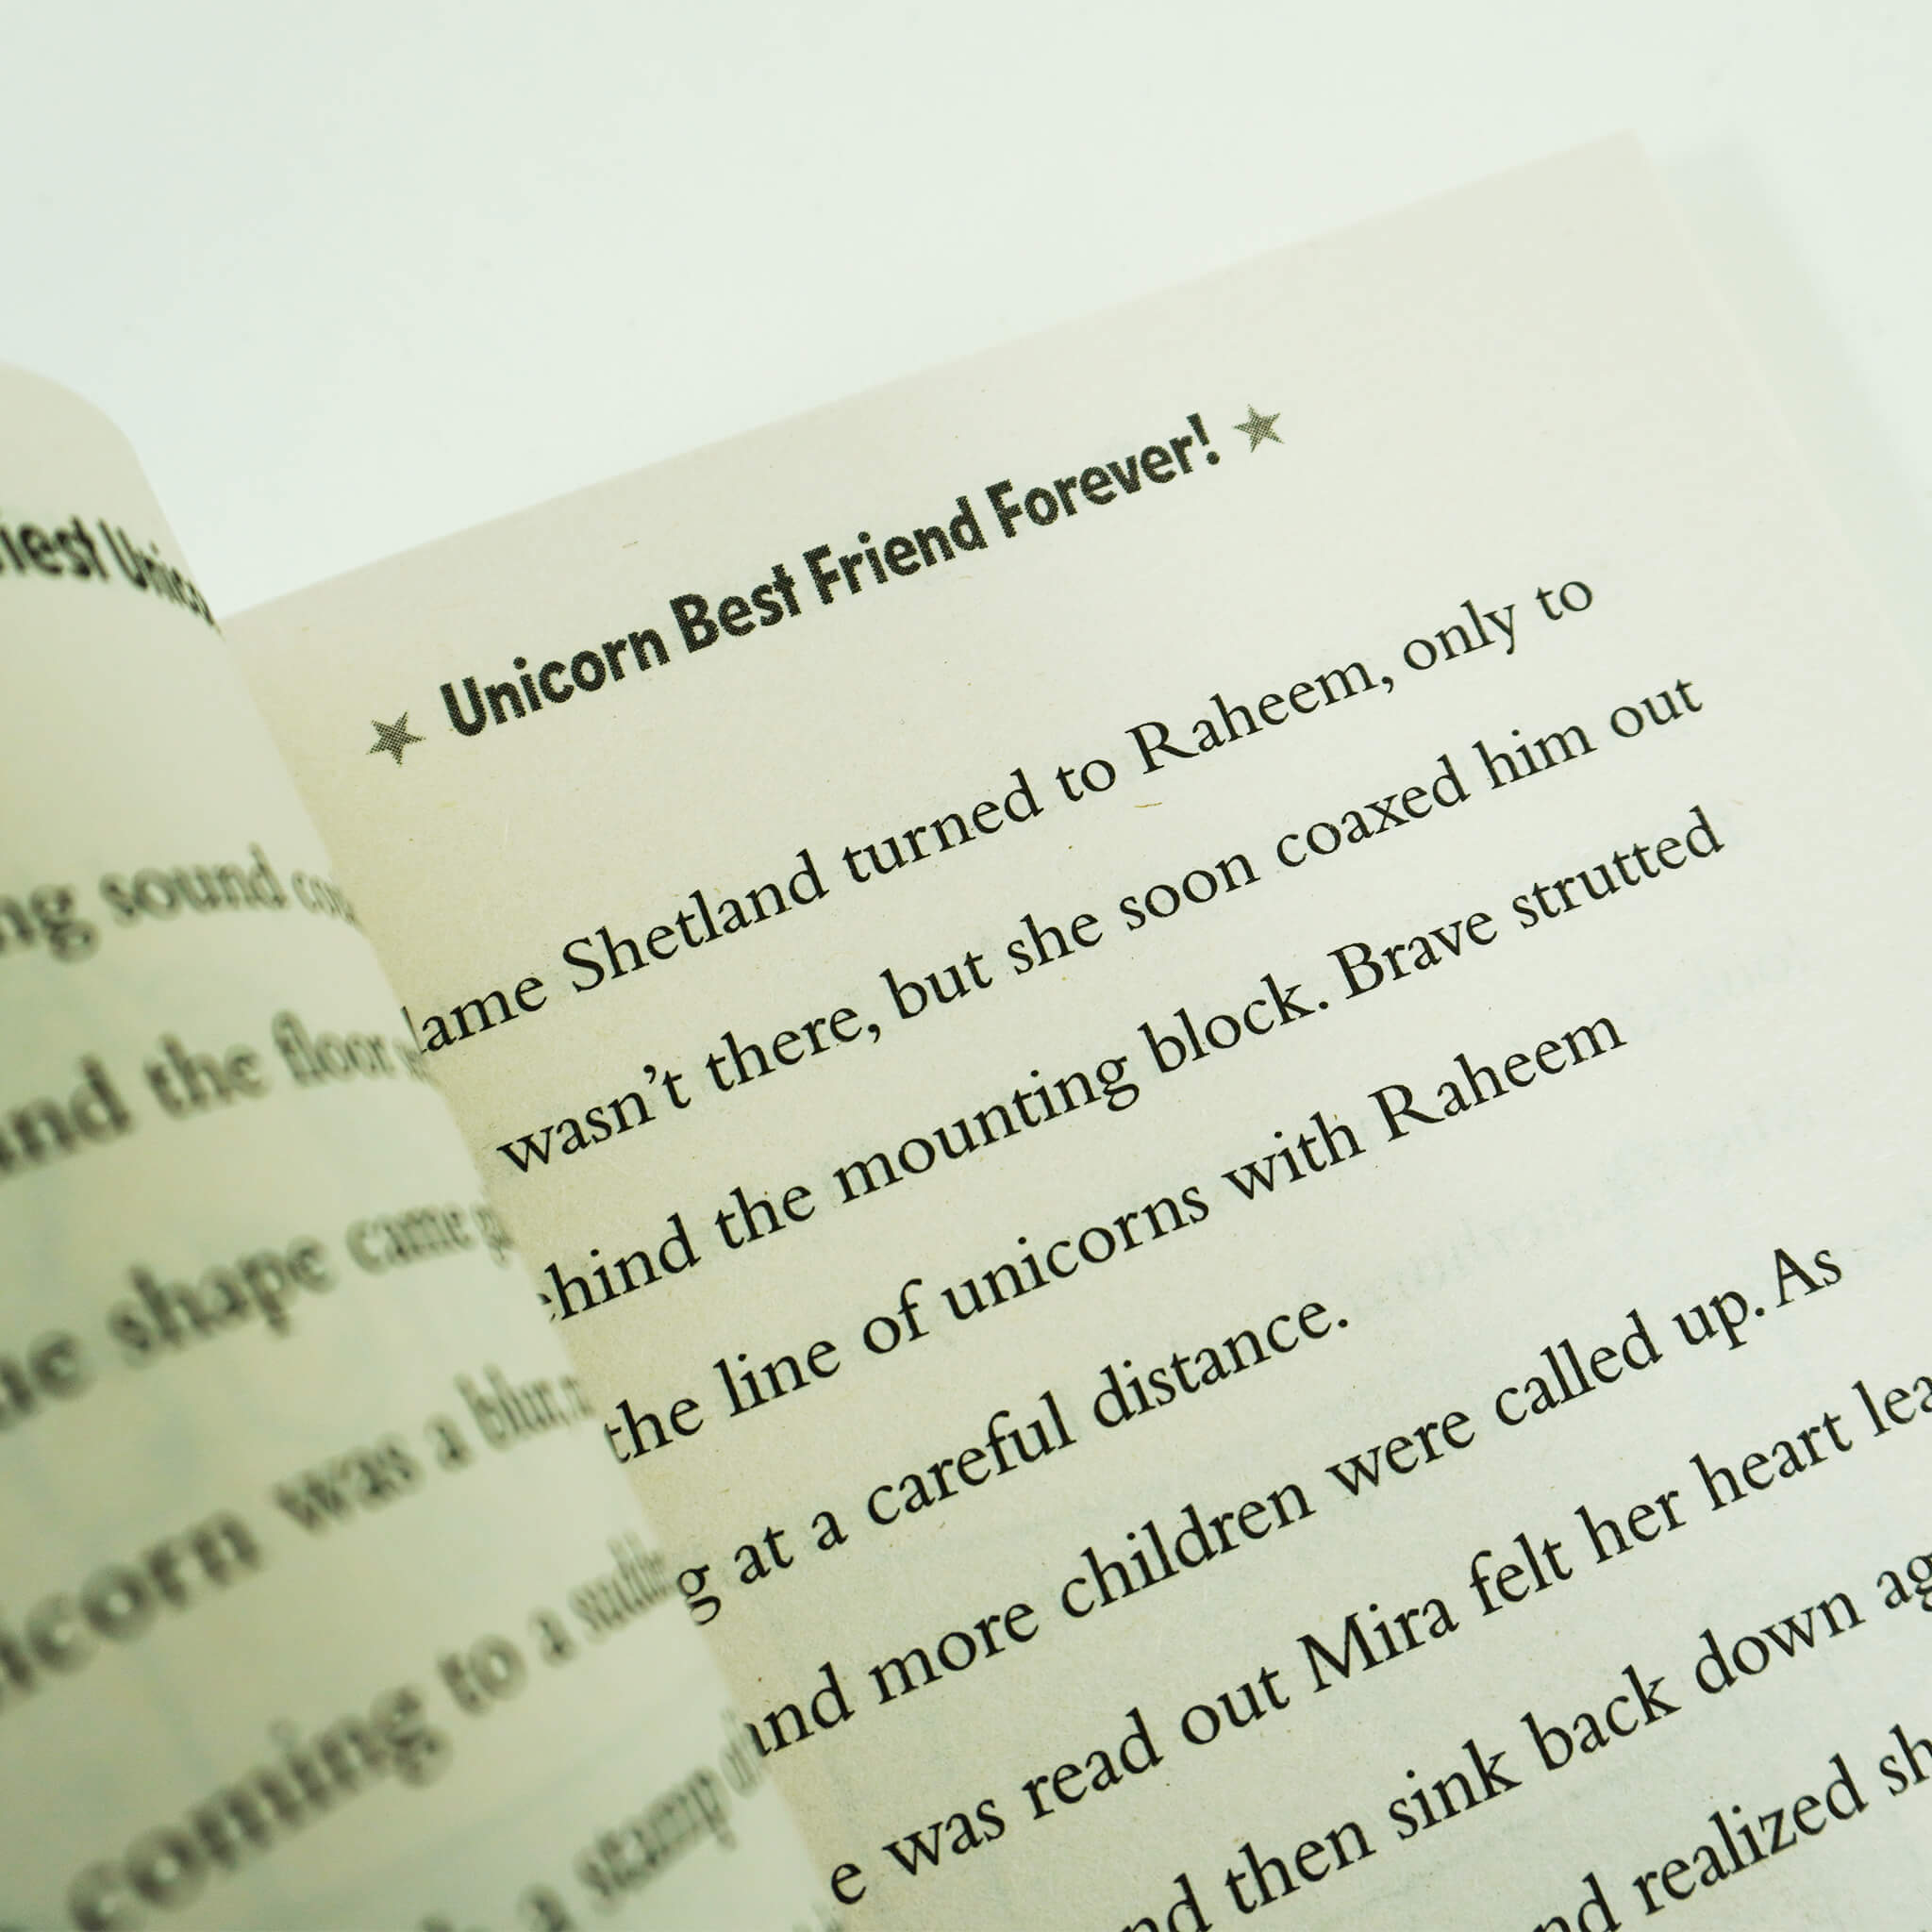 ng sound
and the floor
shape came
was a blur
coming to a
a stamp
★ Unicorn Best Friend Forever! ★
ame Shetland turned to Raheem, only to
wasn't there, but she soon coaxed him out
ehind the mounting block. Brave strutted
the line of unicorns with Raheem
g at a careful distance.
and more children were called up. As
e was read out Mira felt her heart lea
nd then sink back down ag
nd realized sh